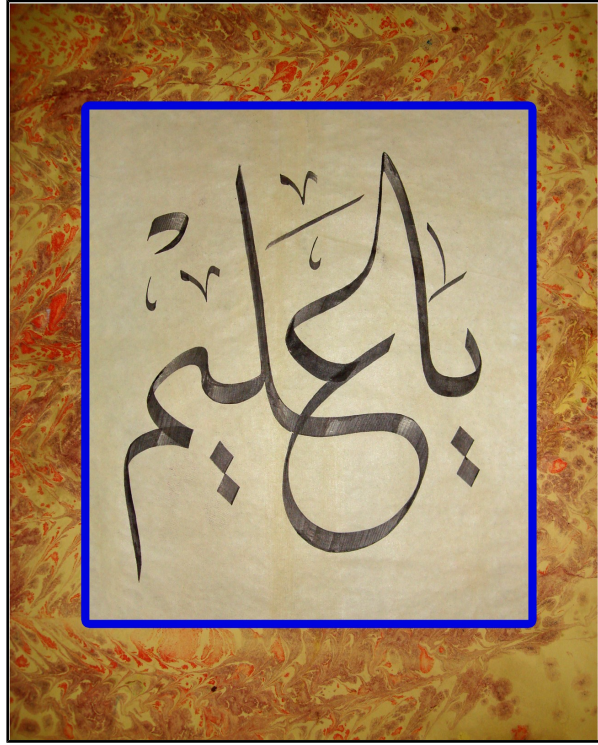 يا عليم